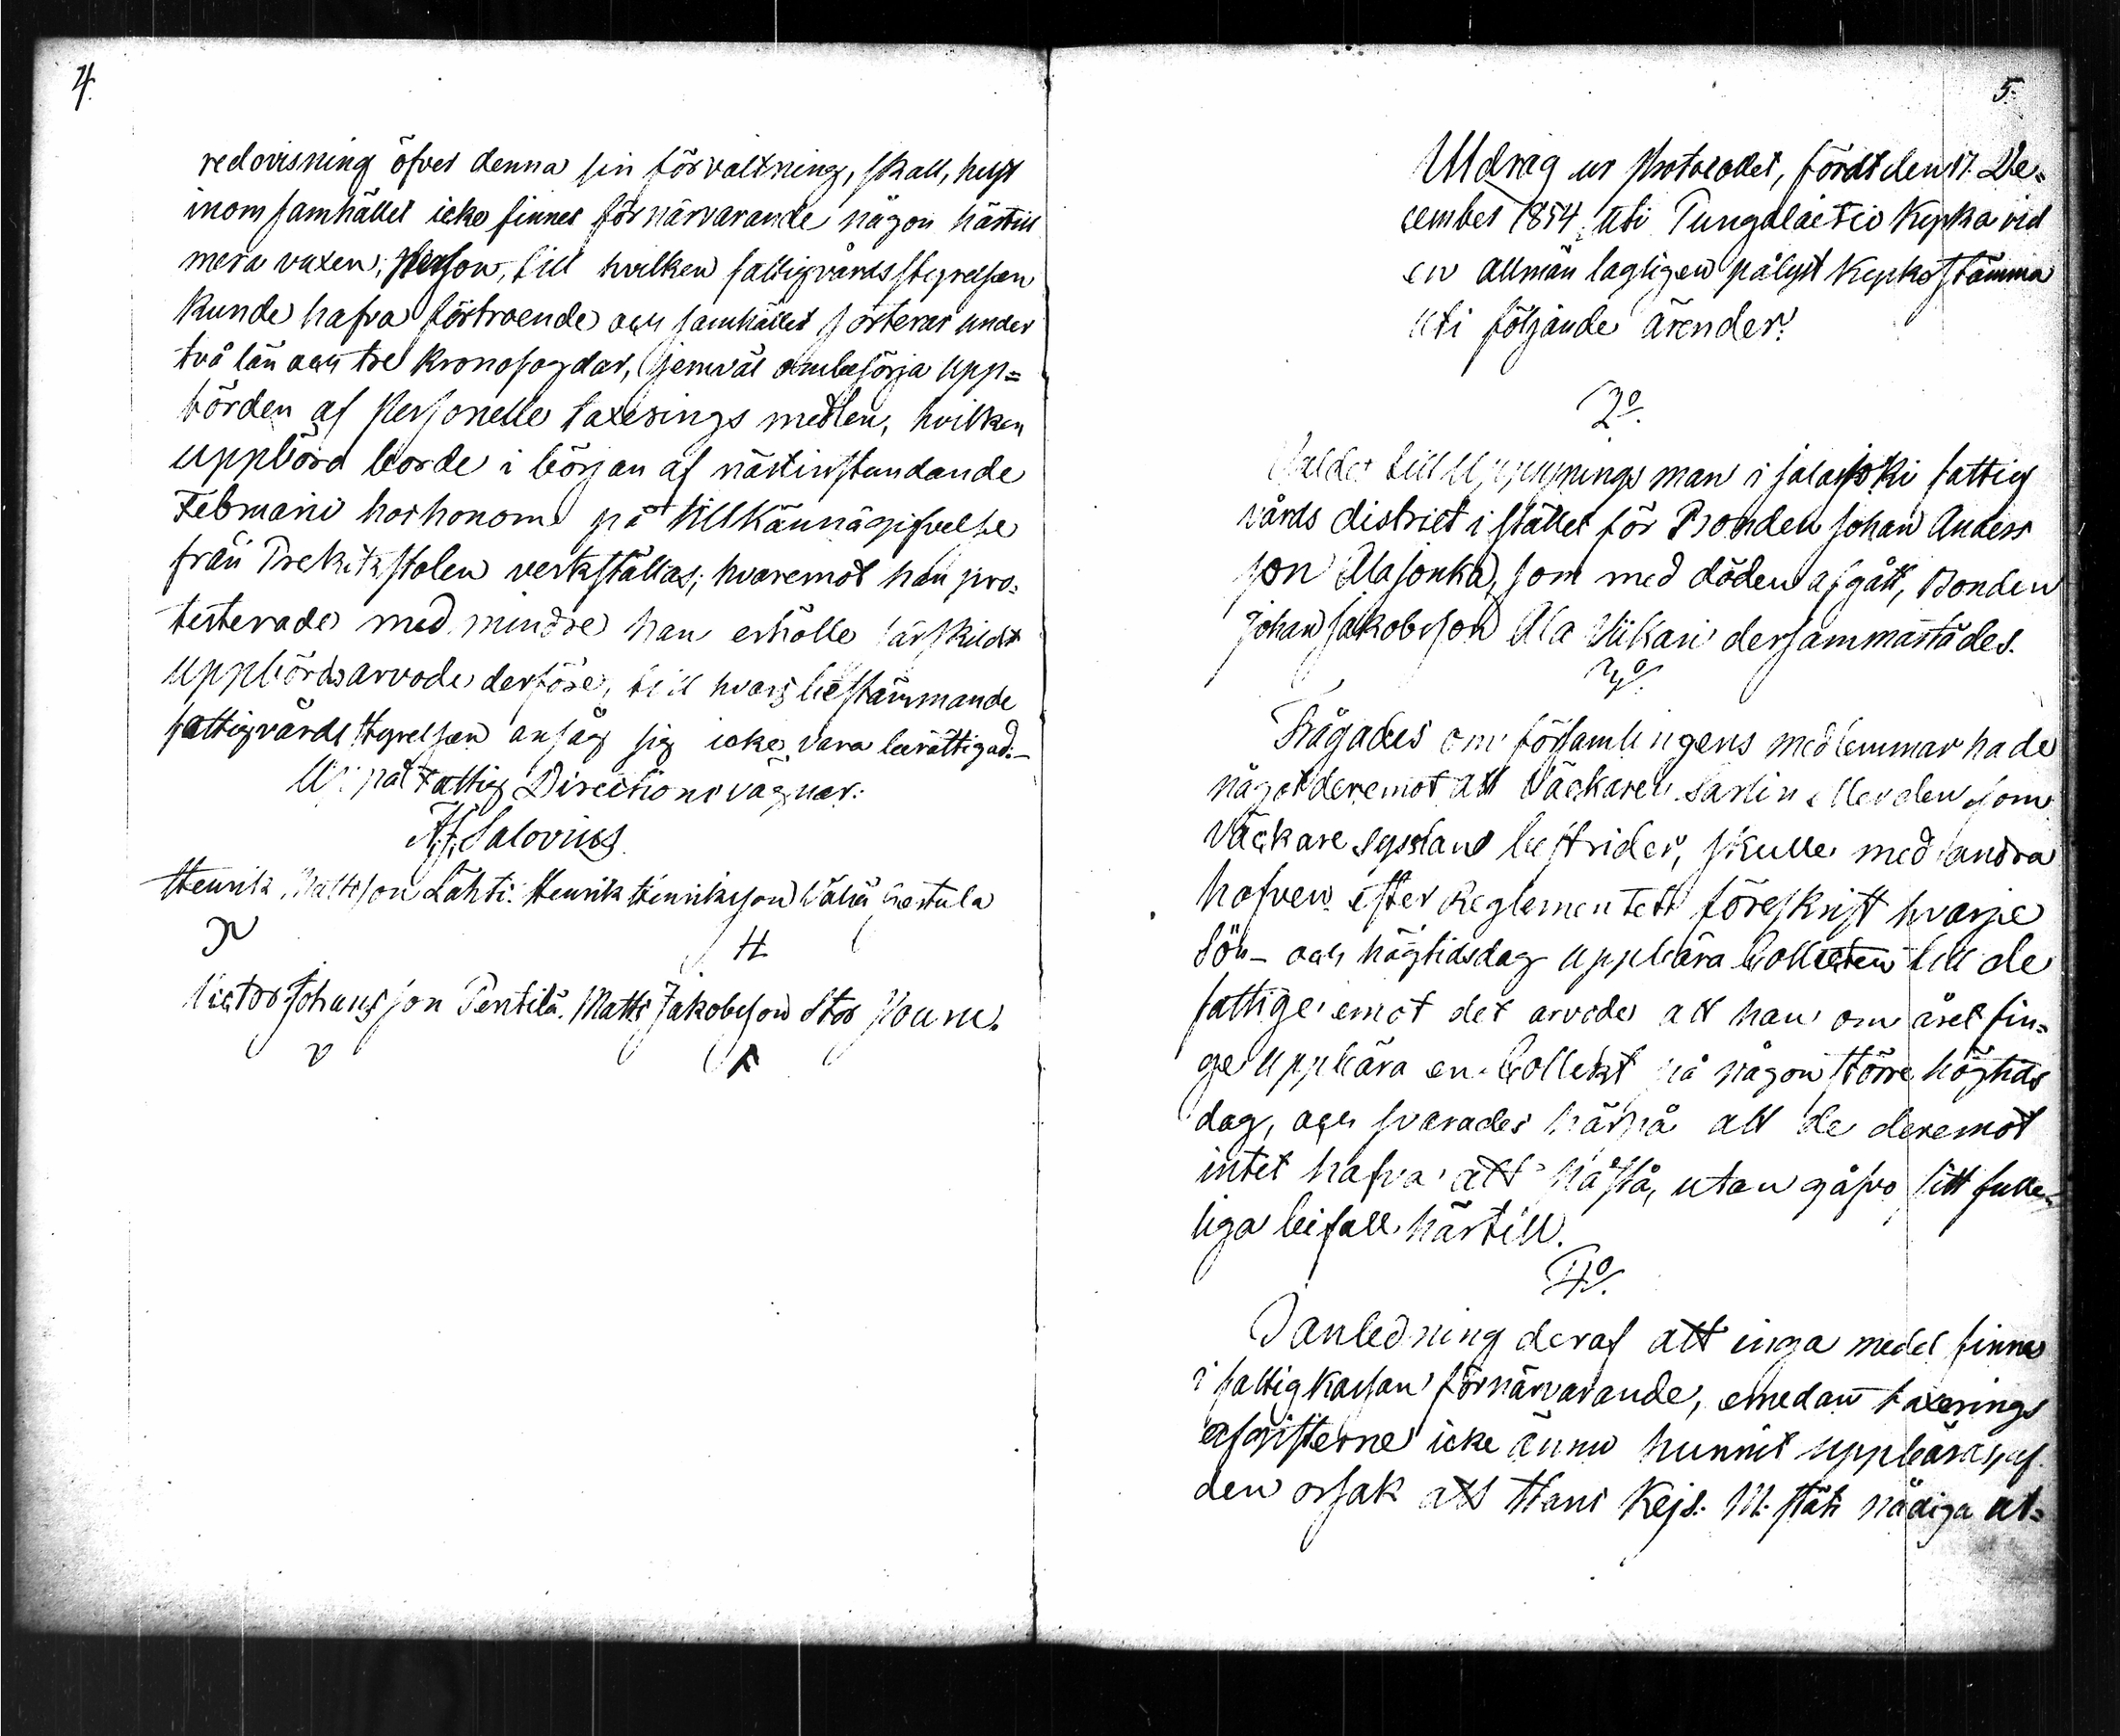 4.
redovisning öfver denna sin förvaltning, skall, helst
inom samhället icke finnes för närvarande någon härtill
mera vuxen, person, till hvilken fattigvårdsstyrelsen
kunde hafva förtroende och samhället sorterar under
två län och tre kronofogdar, jemväl ombesörja upp=
börden af personelle taxerings medlen, hvilken
uppbörd borde i början af nästinstundande
Februarii hos honom på tillkännagifvelse
från Predikstolen verkställas; hvaremot han pro=
testerade med mindre han erhölle särskildt
uppbördsarvode derföre, till hvars bestämmande
fattigvårds styrelsen ansåg sig icke vara berättigad.-
på Fattig Directions vägnar:
Salovius
Henrik Mattsson Lahti. Henrik Henriksson Väliä
H
Victor Johansson Pentilä. Matts Jakobsson Stor
v
5.
Utdrag ur Protocollet, fördt den 17. De=
cember 1854 uti Kyrka vid
en allmän lagligen pålyst Kyrkostämma
uti följande ärender:
2o.
Valdes till man i Jalasjoki fattig
vårds district i stället för Bonden Johan Anders
son Alasonka, som med döden afgått, Bonden
Johan Jakobsson Ala Viikari dersammastädes.
3o.
Frågades om församlingens medlemmar hade
något deremot att Väckaren Sarlin eller den som
Väckare sysslan bestrider, skulle med andra
hofven efter Reglementets föreskrift hvarje
Sön- och högtidsdag uppbära Collecten till de
fattige emot det arvode att han om året fin=
ge uppbära en Collect på någon större högtids
dag, och svarades härpå att de deremot
intet hafva att påstå, utan gåfvo sitt fulle=
liga beifall härtill.
4o.
I anledning deraf att inga medel finnes
i fattigkassan för närvarande, emedan taxerings
afgifterne icke ännu hunnit uppbäras, af
den orsak att Hans Kejs. M. stäts nådiga ut=